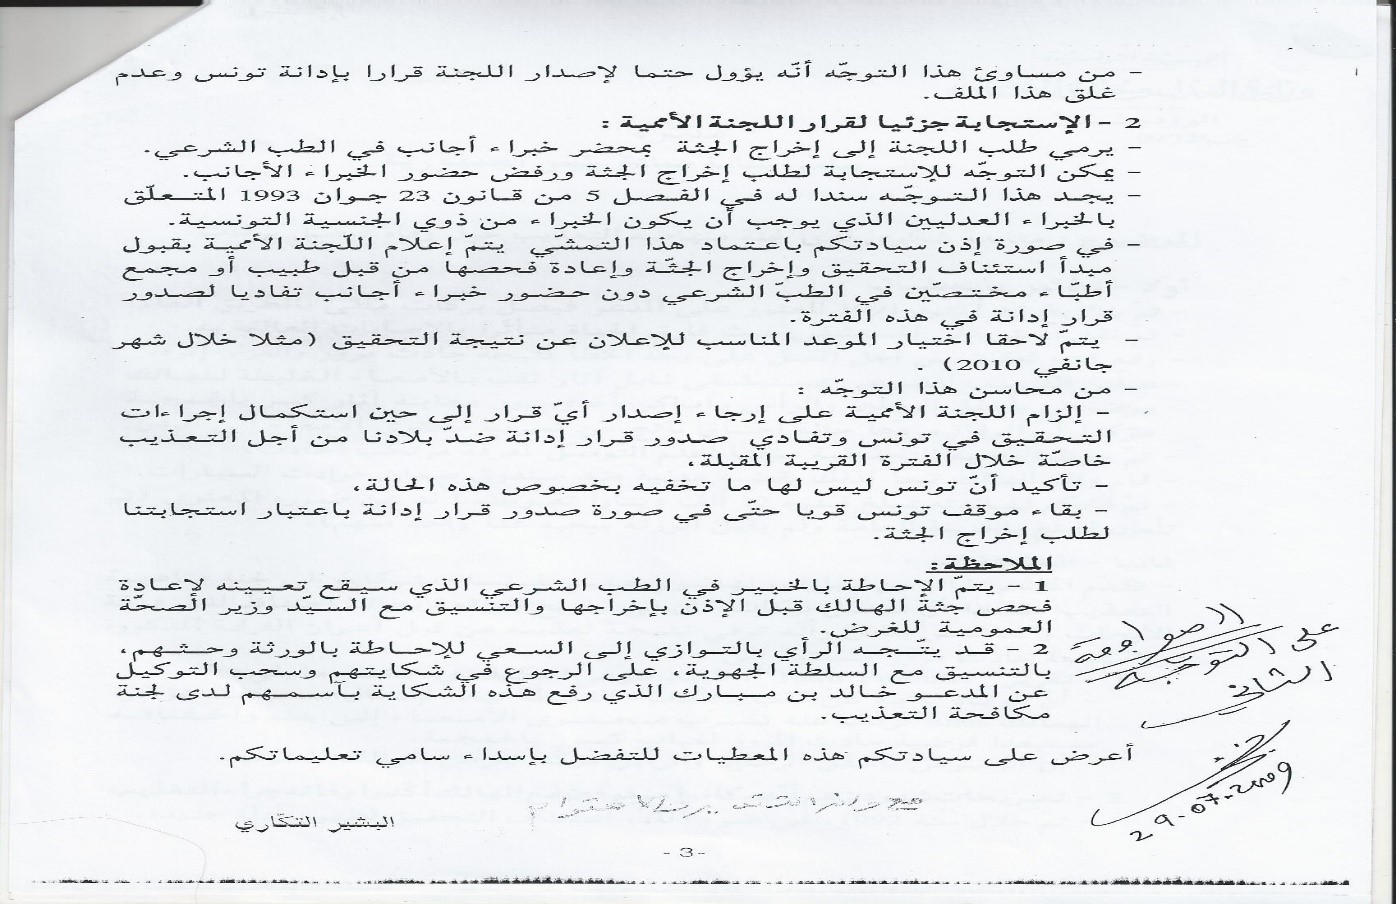 - من مساوئ هذا التوجّه أنّه يؤول حتما لإصدار اللجنة قرارا بإدانة تونس وعدم
غلق هذا الملف.
2 - الإستجابة جزئيا لقرار اللجنة الأممية :
- يرمي طلب اللجنة إلى إخراج الجثة بمحضر خبراء أجانب في الطب الشرعي.
- يمكن التوجّه للإستجابة لطلب إخراج الجثة ورفض حضور الخبراء الأجانب.
- يجد هذا التوجّه سندا له في الفصل 5 من قانون 23 جوان 1993 المتعلّق
بالخبراء العدليين الذي يوجب أن يكون الخبراء من ذوي الجنسية التونسية.
- في صورة إذن سيادتكم باعتماد هذا التمشّي، يتمّ إعلام اللّجنة الأممية بقبول
مبدأ استئناف التحقيق وإخراج الجثّة وإعادة فحصها من قبل طبيب أو مجمع
أطبّاء مختصّين في الطبّ الشرعي دون حضور خبراء أجانب تفاديا لصدور
قرار إدانة في هذه الفترة.
- يتمّ لاحقا اختيار الموعد المناسب للإعلان عن نتيجة التحقيق (مثلا خلال شهر
جانفي 2010) .
- من محاسن هذا التوجّه :
- إلزام اللجنة الأممية على إرجاء إصدار أيّ قرار إلى حين استكمال إجراءات
التحقيق في تونس وتفادي صدور قرار إدانة ضدّ بلادنا من أجل التعذيب
خاصّة خلال الفترة القريبة المقبلة،
- تأكيد أنّ تونس ليس لها ما تخفيه بخصوص هذه الحالة،
- بقاء موقف تونس قويا حتّى في صورة صدور قرار إدانة باعتبار استجابتنا
لطلب إخراج الجثة.
الملاحظة:
1 - يتمّ الإحاطة بالخبير في الطب الشرعي الذي سيقع تعيينه لإعادة
فحص جثة الهالك قبل الإذن بإخراجها والتنسيق مع السيّد وزير الصحّة
العمومية للغرض.
2 - قد يتّجه الرأي بالتوازي إلى السعي للإحاطة بالورثة وحثهم،
بالتنسيق مع السلطة الجهوية، على الرجوع في شكايتهم وسحب التوكيل
عن المدعو خالد بن مبارك الذي رفع هذه الشكاية بآسمهم لدى لجنة
مكافحة التعذيب.
الموافقة
على التوجه
الثاني
أعرض على سيادتكم هذه المعطيات للتفضل بإسداء سامي تعليماتكم.
29.07.2009
البشير التكّاري
- 3 -